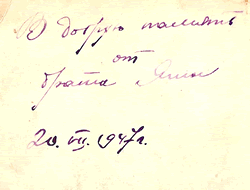 В добрую память
от
брата Яши
20. VII. 1947г.